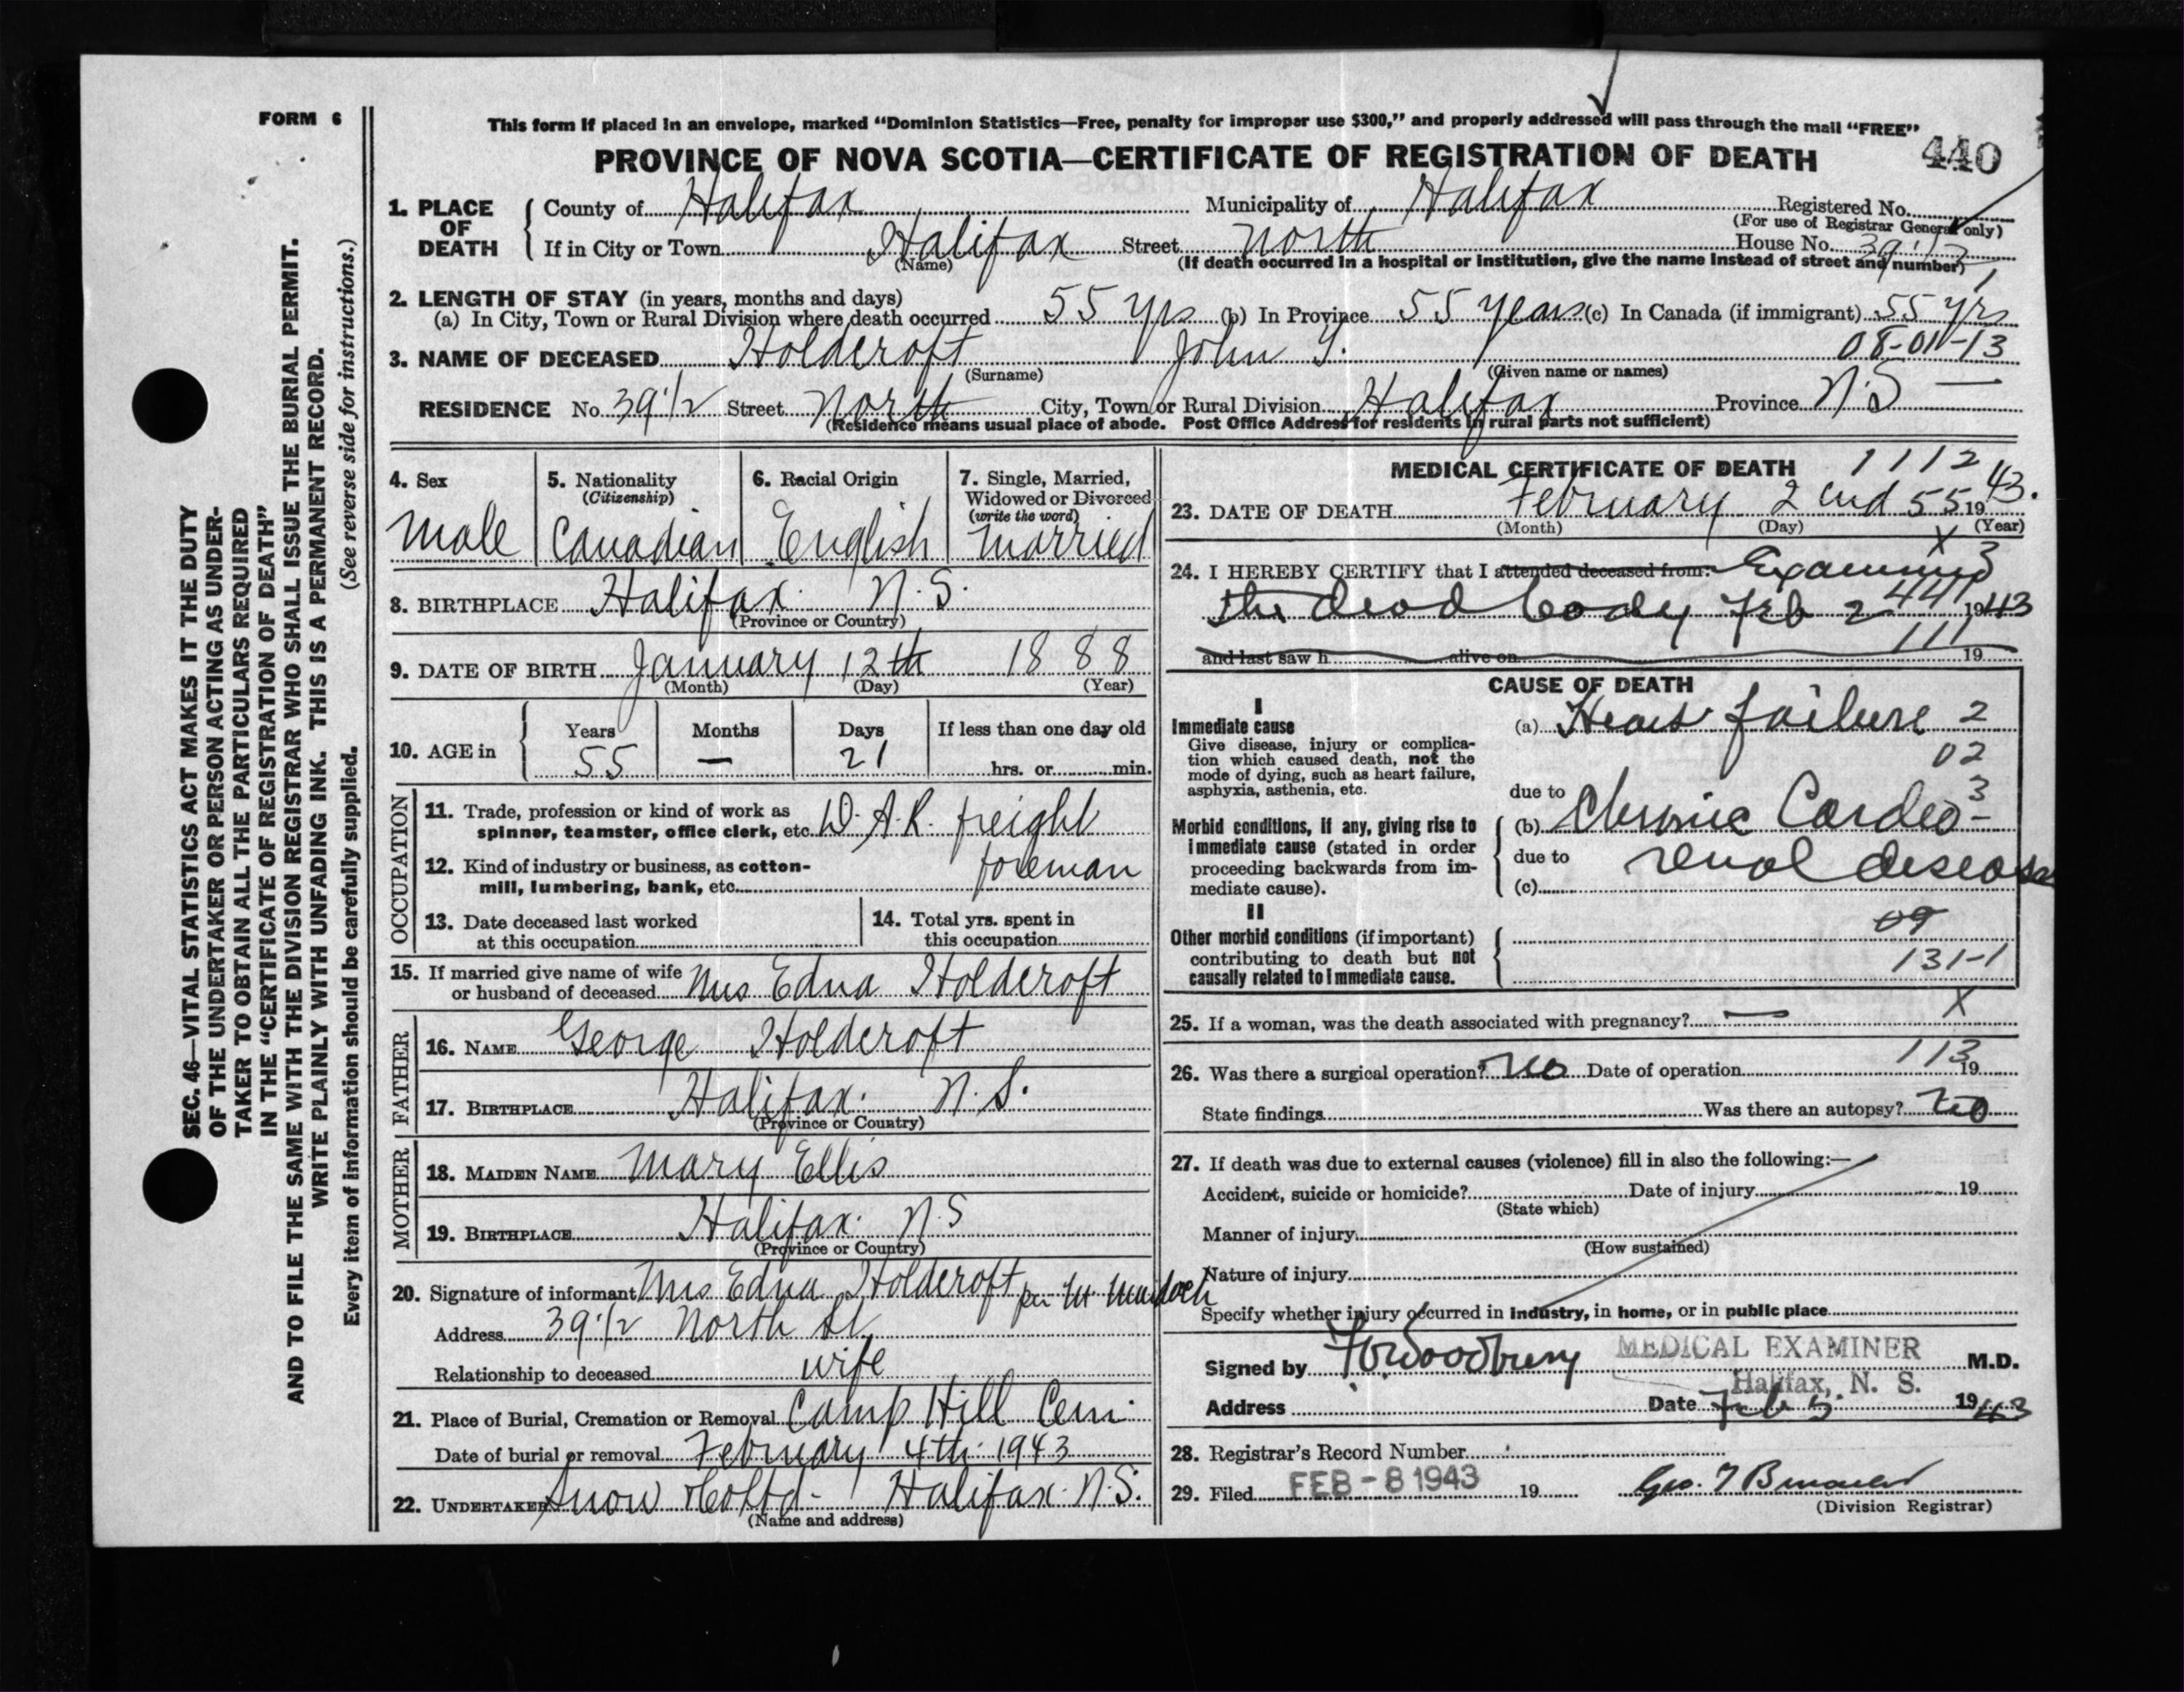 FORM 6
This form if placed in an envelope, marked “Dominion Statistics—Free, penalty for improper use $300,” and properly addressed will pass through the mail “FREE”
PROVINCE OF NOVA SCOTIA—CERTIFICATE OF REGISTRATION OF DEATH 440
1. PLACE OF DEATH { County of Halifax Municipality of Halifax Registered No.
(For use of Registrar General only)
If in City or Town Halifax Street North House No. 39 1/2
(Name) (If death occurred in a hospital or institution, give the name instead of street and number)
2. LENGTH OF STAY (in years, months and days)
(a) In City, Town or Rural Division where death occurred 55 yrs (b) In Province 55 years (c) In Canada (if immigrant) 55 yrs
3. NAME OF DECEASED Holdcroft John 08-01-13
(Surname) (Given name or names)
RESIDENCE No. 39 1/2 Street North City, Town or Rural Division Halifax Province N.S —
(Residence means usual place of abode. Post Office Address for residents in rural parts not sufficient)
4. Sex 5. Nationality (Citizenship) 6. Racial Origin 7. Single, Married, Widowed or Divorced (write the word)
Male Canadian English Married
8. BIRTHPLACE Halifax. N.S.
(Province or Country)
9. DATE OF BIRTH January 12th 1888
(Month) (Day) (Year)
10. AGE in { Years Months Days If less than one day old
55 — 21 hrs. or min.
OCCUPATION
11. Trade, profession or kind of work as
spinner, teamster, office clerk, etc. D.A.R. freight
12. Kind of industry or business, as cotton-
mill, lumbering, bank, etc. foreman
13. Date deceased last worked
at this occupation
14. Total yrs. spent in
this occupation
15. If married give name of wife
or husband of deceased Mrs Edna Holdcroft
FATHER
16. NAME George Holdcroft
17. BIRTHPLACE Halifax. N.S.
(Province or Country)
MOTHER
18. MAIDEN NAME Mary Ellis
19. BIRTHPLACE Halifax. N.S
(Province or Country)
20. Signature of informant Mrs Edna Holdcroft per
Address 39 1/2 North St
Relationship to deceased wife
21. Place of Burial, Cremation or Removal Camp Hill Cem.
Date of burial or removal February 4th. 1943
22. UNDERTAKER Snow & Co Ltd - Halifax. N.S.
(Name and address)
MEDICAL CERTIFICATE OF DEATH 1112
23. DATE OF DEATH February 2nd 55 1943.
(Month) (Day) (Year)
X 3
24. I HEREBY CERTIFY that I attended deceased from: Examined
the dead body Feb 2 441 1943
111
and last saw h alive on 19
CAUSE OF DEATH
I
Immediate cause (a) Heart failure 2
Give disease, injury or complica-
tion which caused death, not the
mode of dying, such as heart failure,
asphyxia, asthenia, etc.
02
due to
3
Morbid conditions, if any, giving rise to
immediate cause (stated in order
proceeding backwards from im-
mediate cause).
(b) Chronic Cardeo-
due to renal disease
(c)
II
09
Other morbid conditions (if important)
contributing to death but not
causally related to immediate cause.
131-1
25. If a woman, was the death associated with pregnancy? — X
113
26. Was there a surgical operation? no Date of operation 19
State findings Was there an autopsy? no
27. If death was due to external causes (violence) fill in also the following:—
Accident, suicide or homicide? Date of injury 19
(State which)
Manner of injury
(How sustained)
Nature of injury
Specify whether injury occurred in industry, in home, or in public place
Signed by Woodbury MEDICAL EXAMINER M.D.
Halifax, N. S.
Address Date Feb 5. 1943
28. Registrar's Record Number
29. Filed FEB - 8 1943 19
(Division Registrar)
SEC. 46—VITAL STATISTICS ACT MAKES IT THE DUTY
OF THE UNDERTAKER OR PERSON ACTING AS UNDER-
TAKER TO OBTAIN ALL THE PARTICULARS REQUIRED
IN THE “CERTIFICATE OF REGISTRATION OF DEATH”
AND TO FILE THE SAME WITH THE DIVISION REGISTRAR WHO SHALL ISSUE THE BURIAL PERMIT.
WRITE PLAINLY WITH UNFADING INK. THIS IS A PERMANENT RECORD.
Every item of information should be carefully supplied. (See reverse side for instructions.)